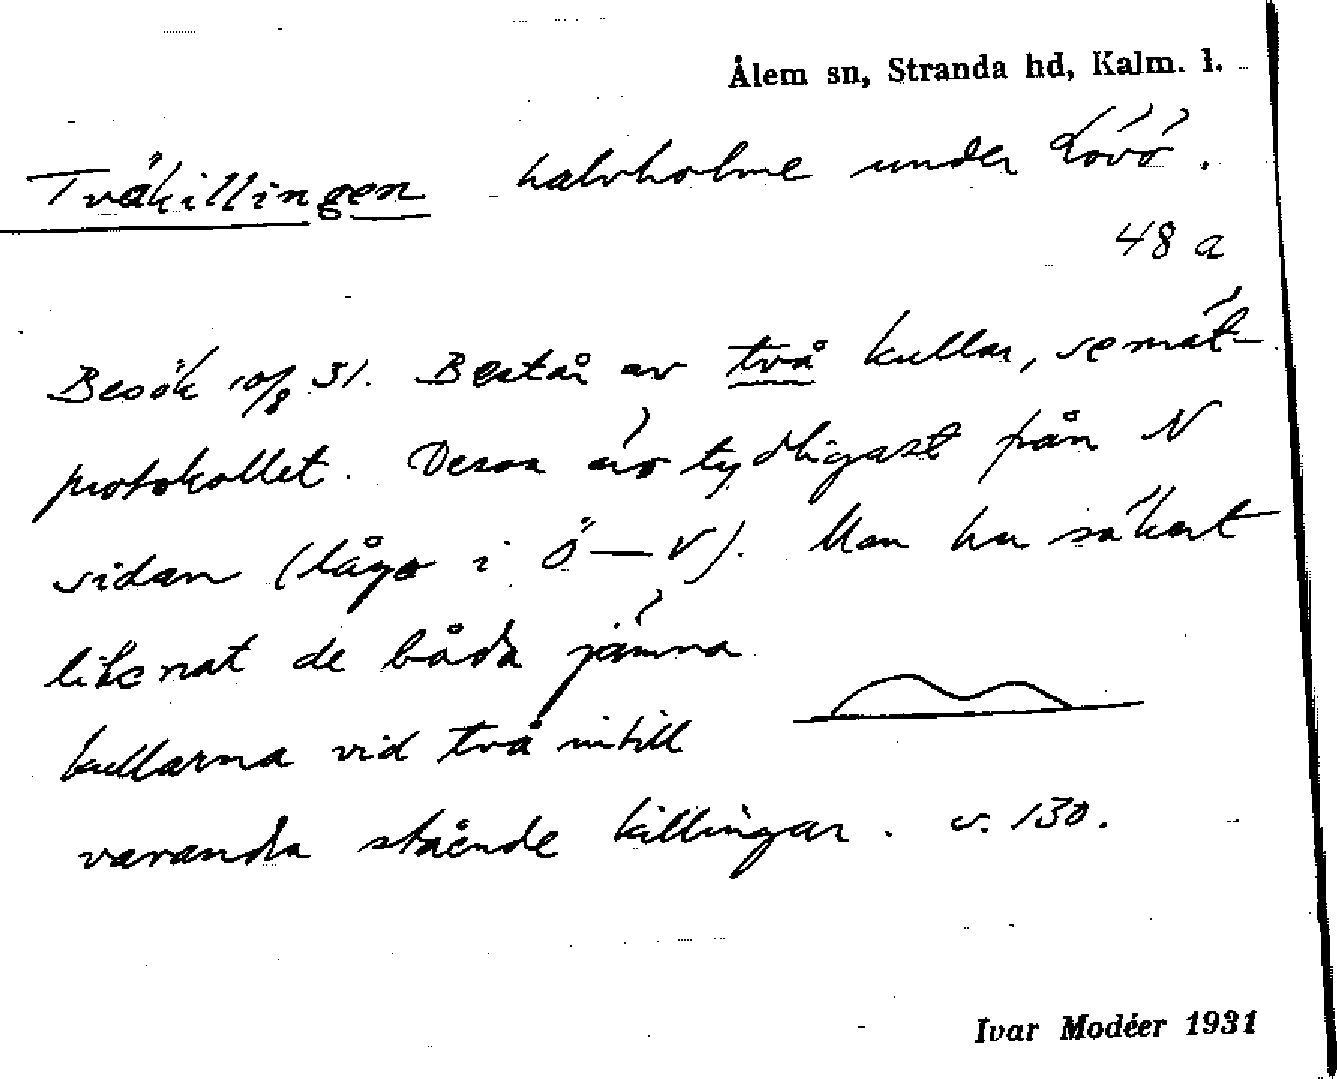 Ålem sn, Stranda hd, Kalm. l.
Tväkillingen halvholme under Lövö.
48 a
Besök 10/8 31. Består av två kullar, se mät-
protokollet. Dessa äro tydligast från N
sidan (läge i Ö—V). Man har säkert
liknat de båda jämna
kullarna vid två intill
varandra stående killingar. s. 130.
Ivar Modéer 1931